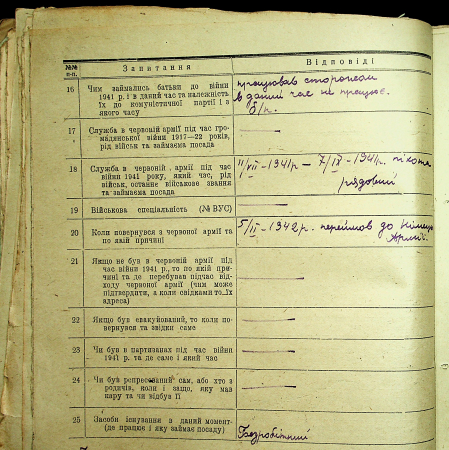 №№ п-п. Запитання Відповіді
16 Чим займались батьки до війни
1941 р. і в даний час та належність
їх до комуністичної партії і з
якого часу
працював сторожем
в даний час не працює.
б/п.
17 Служба в червоній армії під час гро-
мадянської війни 1917—22 років,
рід військ та займаєма посада
18 Служба в червоній армії під час
війни 1941 року, який час, рід
військ, останнє військове звання
та займаєма посада
11/VII - 1941р. — 7/IX - 1941р. піхота
рядовий
19 Військова спеціальність (№ ВУС)
20 Коли повернувся з червоної армії та
по якій причині
5/II - 1942р. перейшов до Німец.
Армії.
21 Якщо не був в червоній армії під
час війни 1941 р., то по якій при-
чині та де перебував підчас від-
ходу червоної армії (чим може
підтвердити, а коли свідками то їх
адреса)
22 Якщо був евакуйований, то коли по-
вернувся та звідки саме
23 Чи був в партизанах під час війни
1941 р. та де саме і який час
24 Чи був репресований сам, або хто з
родичів, коли і защо, яку мав
кару та чи відбув її
25 Засоби існування в даний момент
(де працює і яку займає посаду)
Безробітний